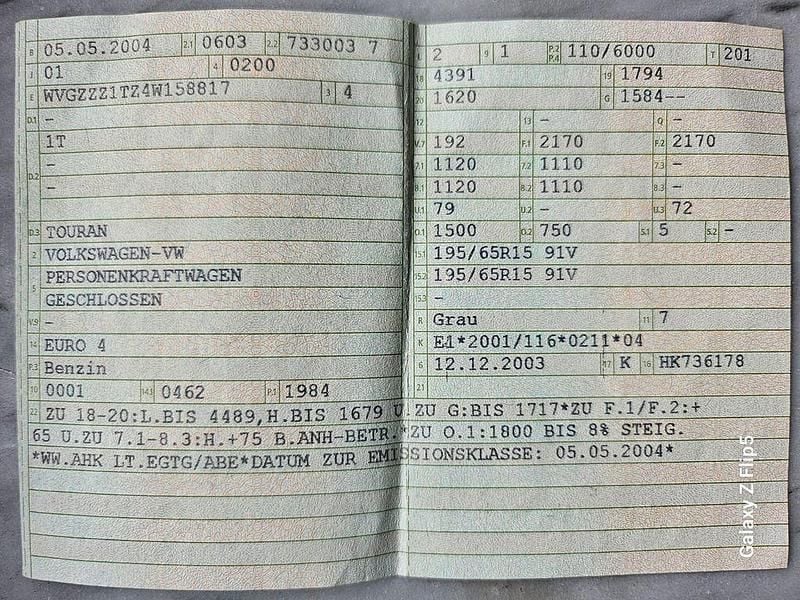 B 05.05.2004 2.1 0603 2.2 733003 7
J 01 4 0200
E WVGZZZ1TZ4W158817 3 4
D.1 -
1T
D.2 -
-
D.3 TOURAN
2 VOLKSWAGEN-VW
5 PERSONENKRAFTWAGEN
GESCHLOSSEN
V.9 -
14 EURO 4
P.3 Benzin
10 0001 14.1 0462 P.1 1984
22 ZU 18-20:L.BIS 4489,H.BIS 1679 U.ZU G:BIS 1717*ZU F.1/F.2:+
65 U.ZU 7.1-8.3:H.+75 B.ANH-BETR.*ZU O.1:1800 BIS 8% STEIG.
*WW.AHK LT.EGTG/ABE*DATUM ZUR EMISSIONSKLASSE: 05.05.2004*
L 2 9 1 P.2 P.4 110/6000 T 201
18 4391 19 1794
20 1620 G 1584--
12 13 - Q -
V.7 192 F.1 2170 F.2 2170
7.1 1120 7.2 1110 7.3 -
8.1 1120 8.2 1110 8.3 -
U.1 79 U.2 - U.3 72
O.1 1500 O.2 750 S.1 5 S.2 -
15.1 195/65R15 91V
15.2 195/65R15 91V
15.3 -
R Grau 11 7
K E1*2001/116*0211*04
6 12.12.2003 17 K 16 HK736178
21
Galaxy Z Flip5